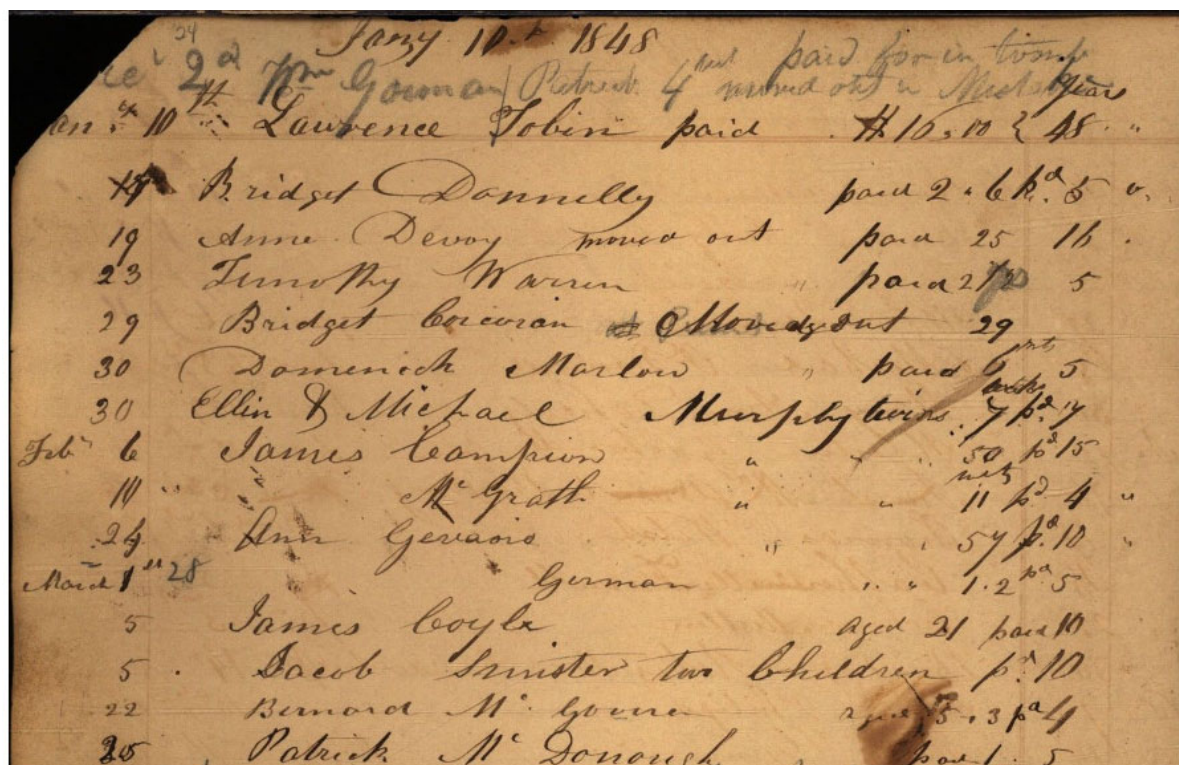 Jany 10th 1848
24
2d Wm Gorman / Patrick 4 paid for in tomb
moved out
years
10th Lawrence Tobin paid $10.00 48 "
Bridget Donnelly paid 2.6 pd. 5
19 Anne Devoy moved out paid 25 16 .
23 Timothy Warren " paid 5
29 Bridget Corcoran Moved out 29
30 Domenick Marlow " paid 6 5
30 Ellin & Michael Murphy twins 7 pd. 7
Feby 6 James Campion " " " 50 pd 15
10 " " McGrath " " 11 pd 4 "
24 Ann " 57 pd. 10 "
March 1st 28 " German " " 1.2 pd 5
5 James Coyle aged 21 paid 10
5 . Jacob two Children pd. 10
22 Bernard Mc aged 3 pd 4
Patrick McDonough " paid 1. 5